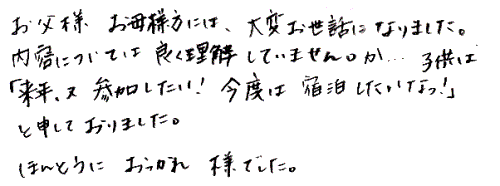 お父様 お母様方には、大変お世話になりました。
内容については良く理解していませんが… 子供は
「来年、又 参加したい! 今度は 宿泊したいなっ!」
と申しておりました。
ほんとうに おつかれ 様でした。